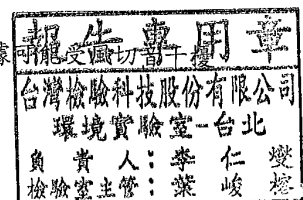 報告專用章
據可能受風切
台灣檢驗科技股份有限公司
環境實驗室-台北
負責人：李仁燮
檢驗室主管：葉峻